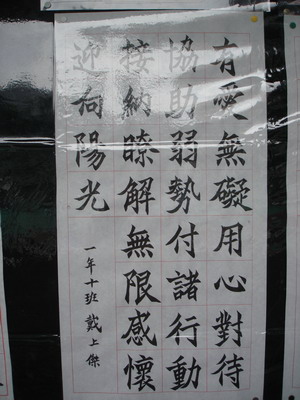 有愛無礙用心對待
協助弱勢付諸行動
接納瞭解無限感懷
迎向陽光
一年十班 戴上傑